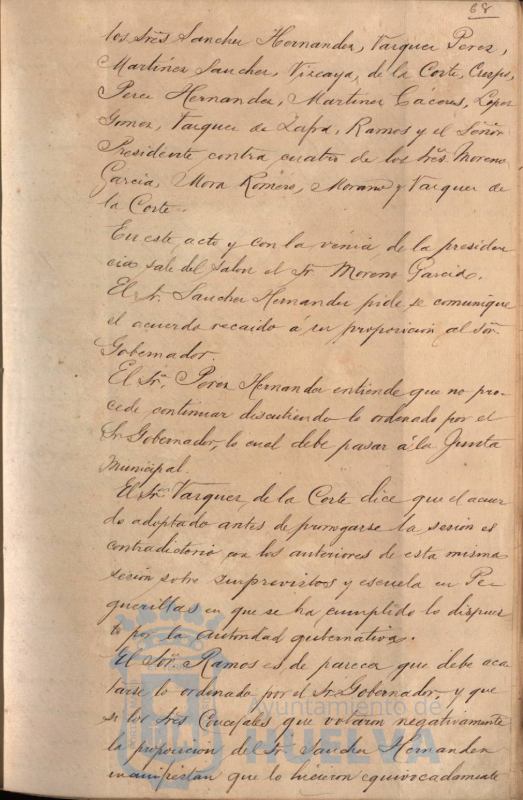 68
los Srēs Sanchez Hernandez, Vazquez Perez,
Martinez Sanchez, Vizcaya, de la Corte, Crespo,
Perez Hernandez, Martinez Cáceres, Lopez
Gomez, Vazquez de Zafra, Ramos y el Señor
Presidente contra cuatro de los Srēs Moreno
Garcia, Mora Romero, Morano y Vazquez de
la Corte.
En este acto y con la venia de la presiden
cia sale del salon el Sr. Moreno Garcia.
El Sr. Sanchez Hernandez pide se comunique
el acuerdo recaido á su proposicion al Sor.
Gobernador.
El Sr. Perez Hernandez entiende que no pro-
cede continuar discutiendo lo ordenado por el
Sr Gobernador, lo cual debe pasar á la Junta
Municipal.
El Sr. Vazquez de la Corte dice que el acuer
do adoptado antes de prorrogarse la sesion es
contradictorio con los anteriores de esta misma
sesion sobre imprevistos y escuela en Pe
guerillas en que se ha cumplido lo dispues
to por la autoridad gubernativa.
El Sor. Ramos es de parecer que debe aca
tarse lo ordenado por el Sr. Gobernador y que
si los tres Concejales que votaron negativamente
la proposicion del Sr. Sanchez Hernandez
manifiestan que lo hicieron equivocadamente
Ayuntamiento de
HUELVA